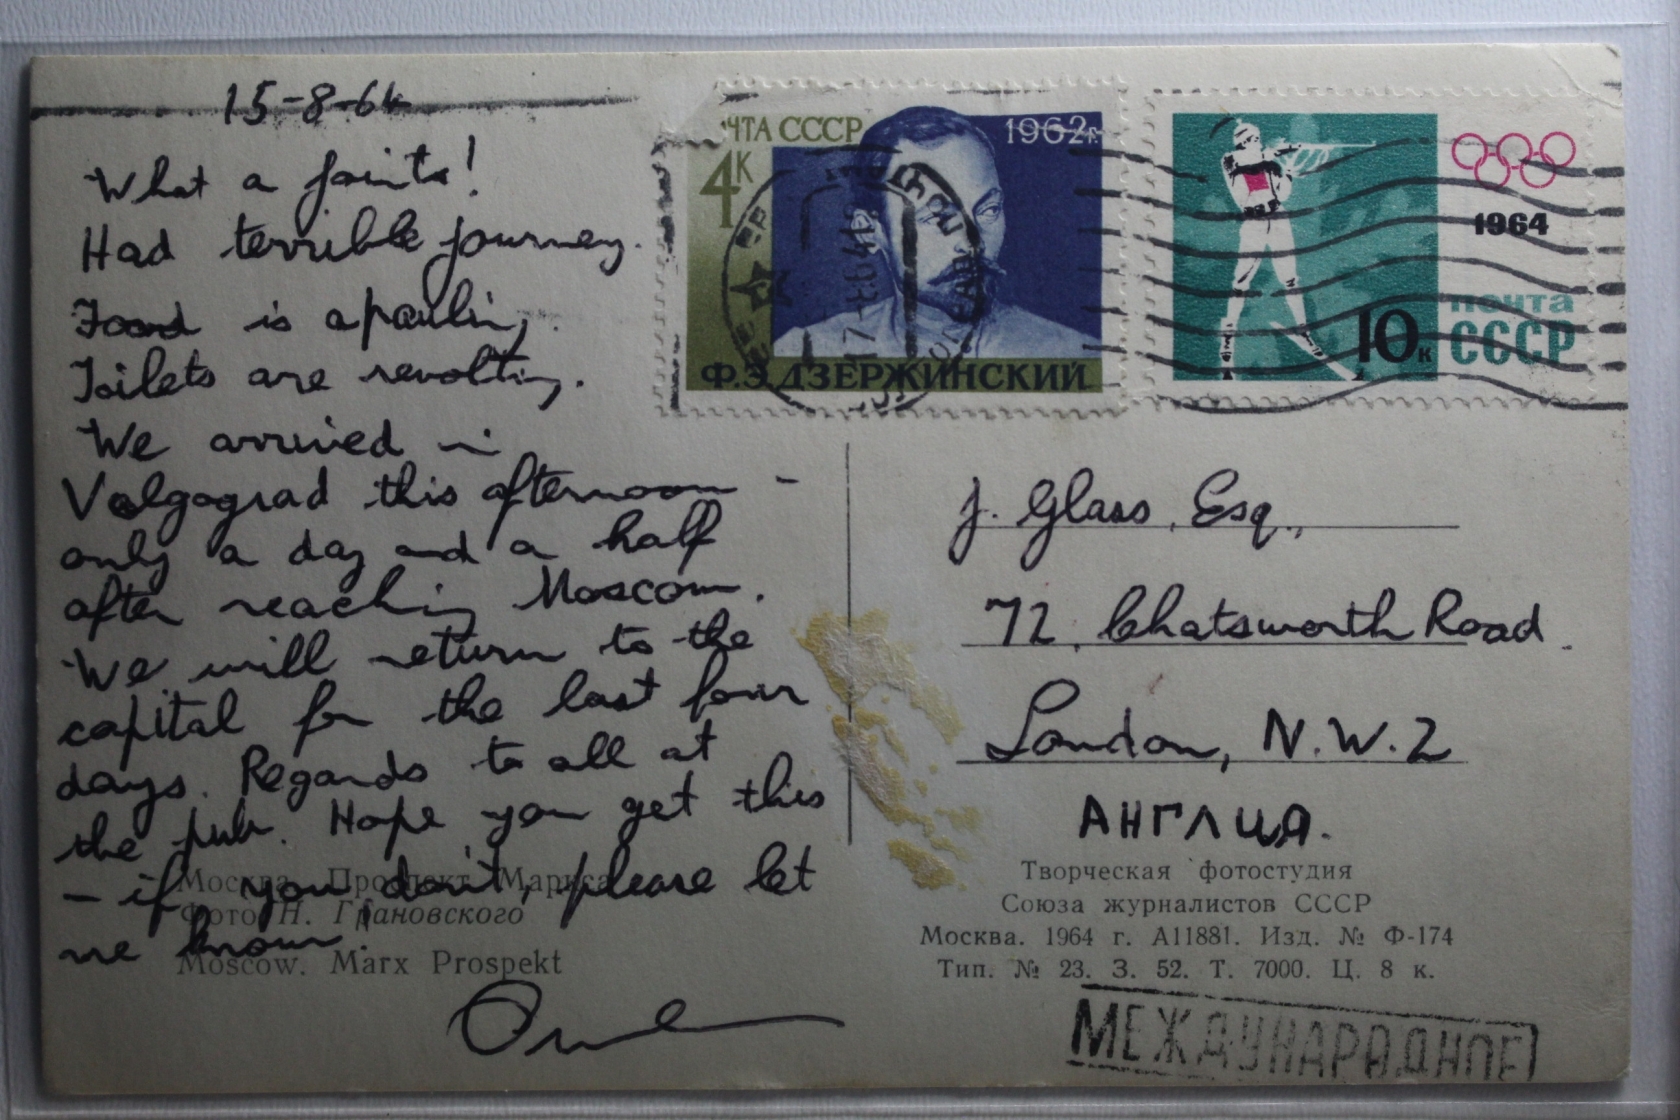 15-8-64
What a joint!
Had terrible journey.
Food is apaulin,.
Toilets are revolting.
We arrived in
Volgograd this afternoon -
only a day and a half
after reaching Moscow.
We will return to the
capital for the last four
days. Regards to all at
the pub. Hope you get this
- if you don't, please let
me know!
Москва. Проспект Маркса
Фото Н. Грановского
Moscow. Marx Prospekt
ЧТА СССР
1962г.
4к
Ф.Э.ДЗЕРЖИНСКИЙ
1964
10к
почта
СССР
J. Glass, Esq.,
72, Chatsworth Road.
London, N.W.2
АНГЛИЯ.
Творческая фотостудия
Союза журналистов СССР
Москва. 1964 г. А11881. Изд. № Ф-174
Тип. № 23. З. 52. Т. 7000. Ц. 8 к.
МЕЖДУНАРОДНОЕ